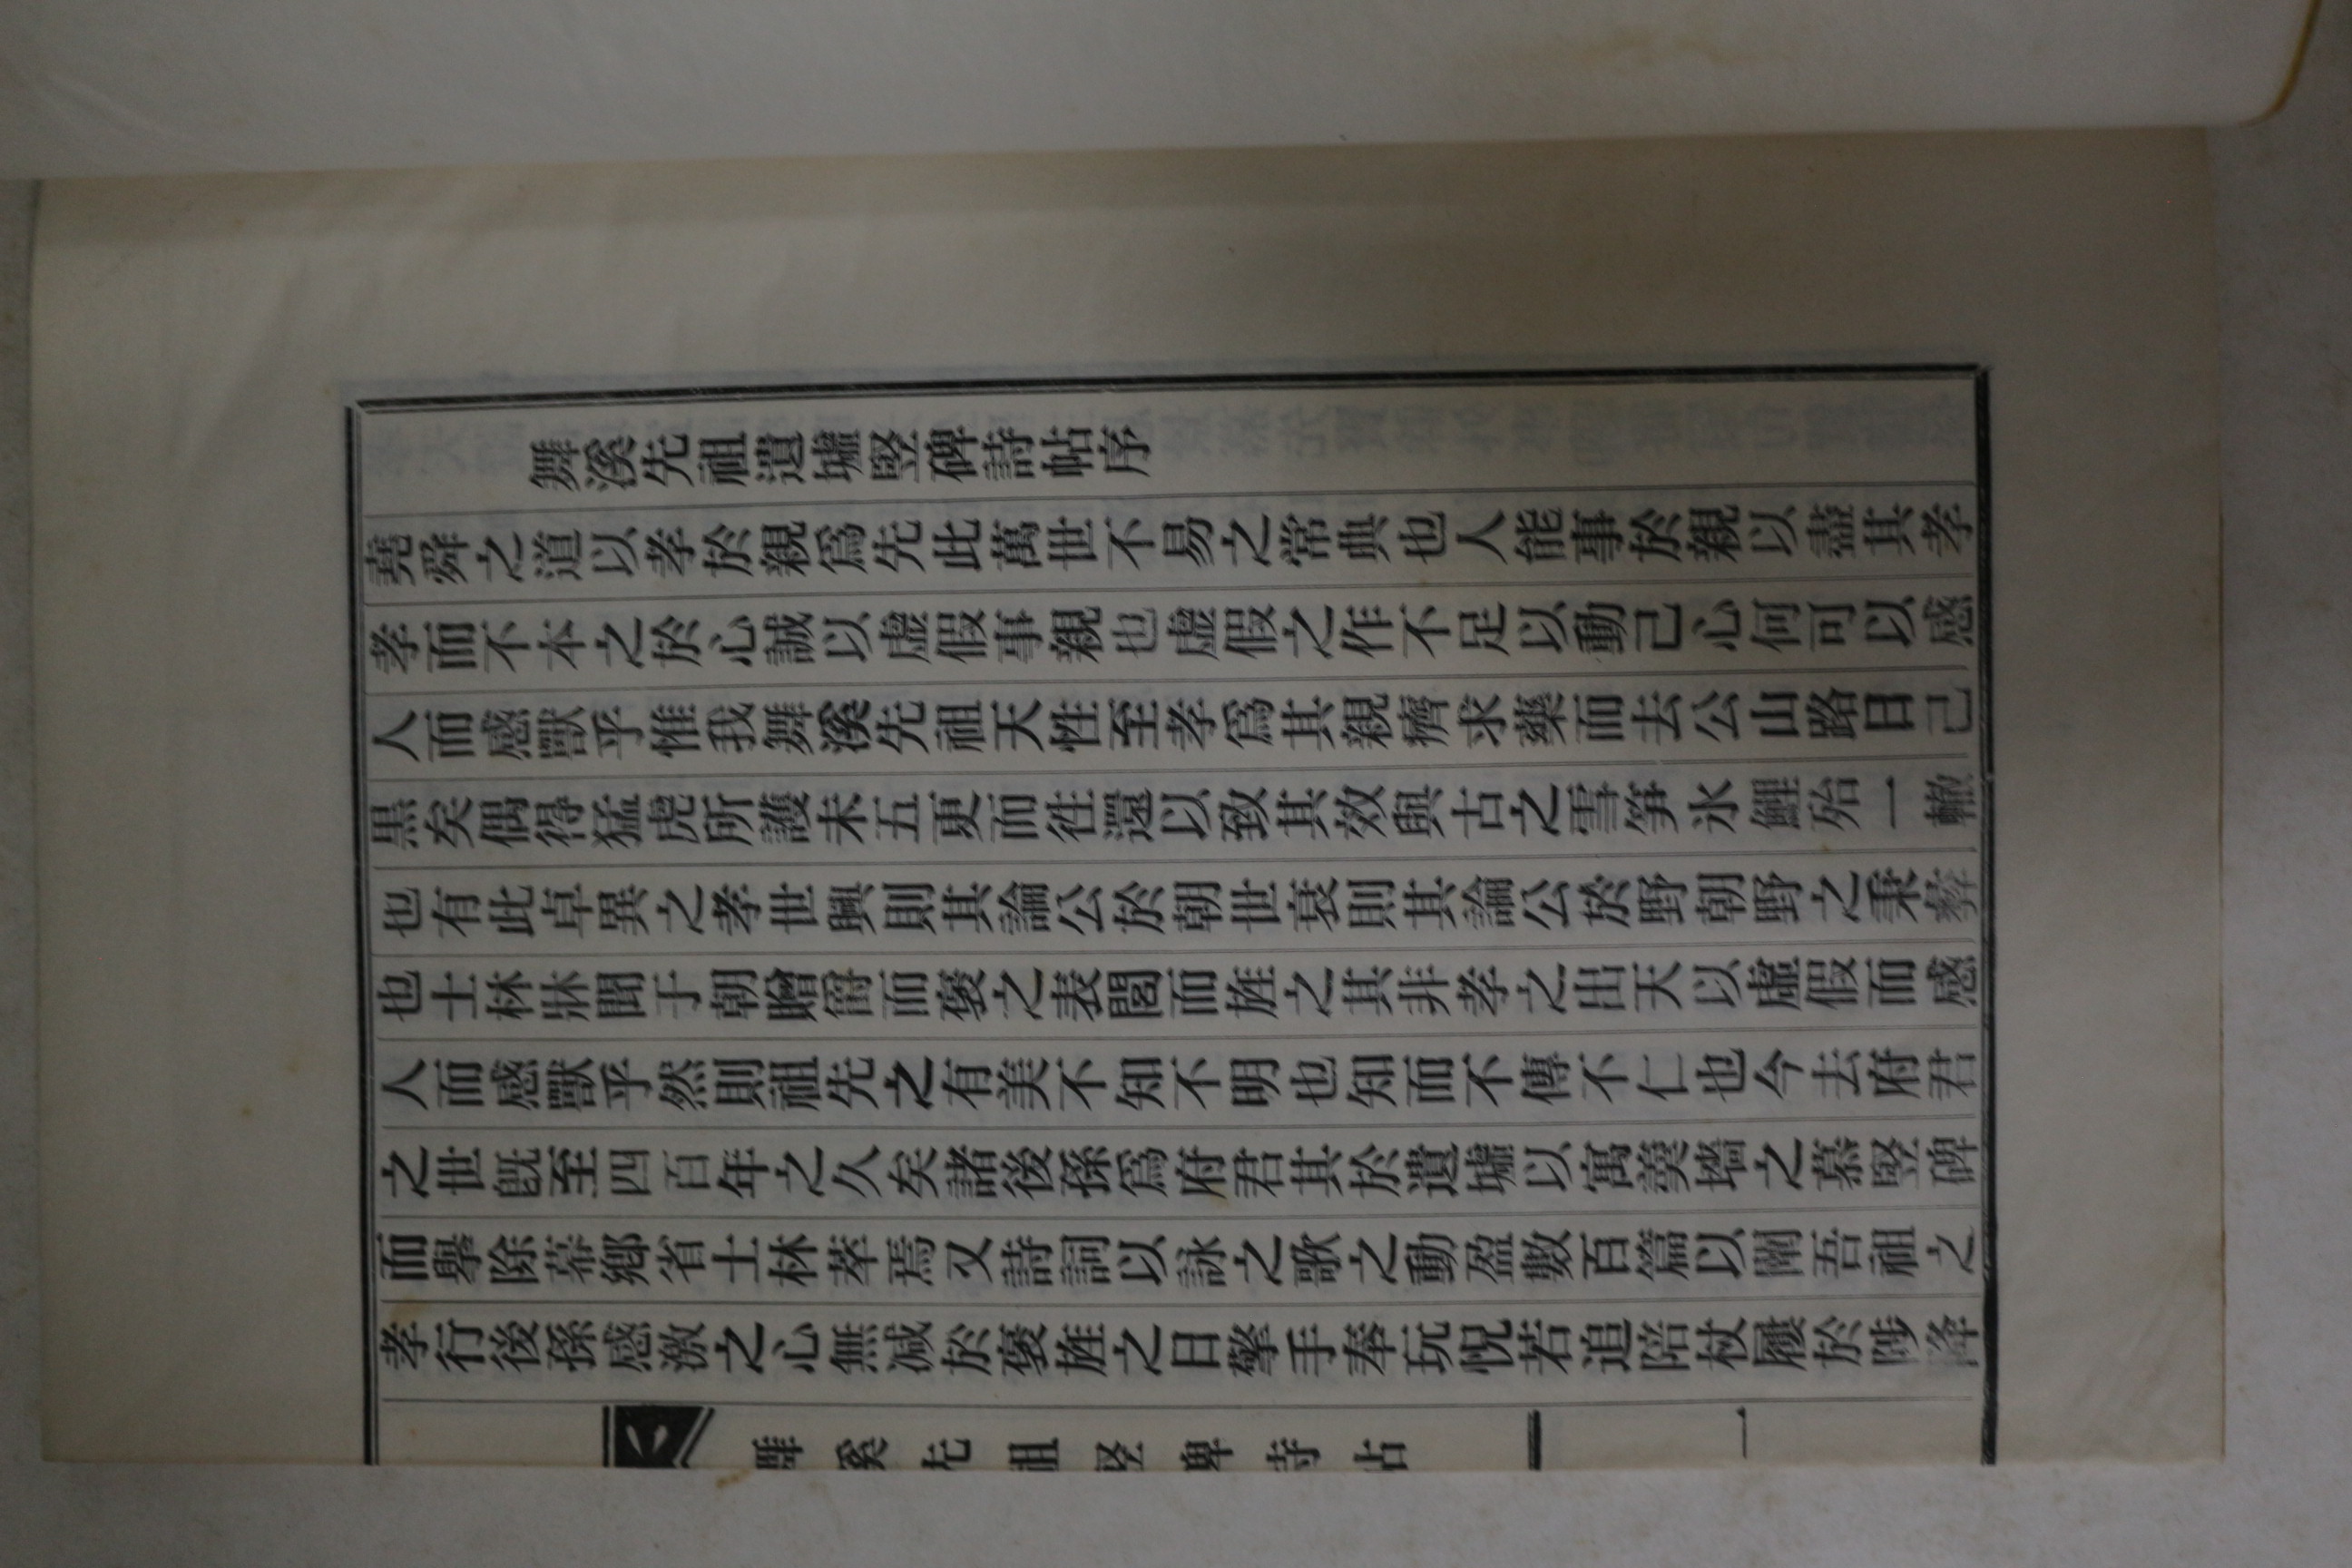 舞溪先祖遺墟竪碑詩帖序
堯舜之道以孝於親爲先此萬世不易之常典也人能事於親以盡其孝
孝而不本之於心誠以虛假事親也虛假之作不足以動己心何可以感
人而感獸乎惟我舞溪先祖天性至孝爲其親癠求藥而去公山路日己
黑矣偶得猛虎所護未五更而徃還以致其效與古之雪笋氷鯉殆一轍
也有此卓異之孝世興則其論公於朝世衰則其論公於野朝野之秉彜
也士林牀聞于朝贈爵而褒之表閭而旌之其非孝之出天以虛假而感
人而感獸乎然則祖先之有美不知不明也知而不傳不仁也今去府君
之世旣至四百年之久矣諸後孫爲府君其於遺墟以寓羹墻之慕竪碑
而擧除幕鄕省士林萃焉又詩詞以詠之歌之動盈數百篇以闡吾祖之
孝行後孫感激之心無减於褒旌之日擎手奉玩怳若追陪杖屨於陟降
舞溪先祖竪碑詩帖 一